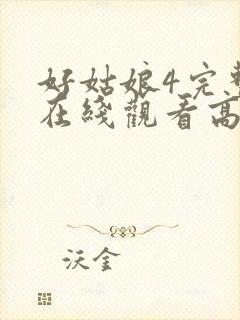 好姑娘4完整
在线觀看高
沃金